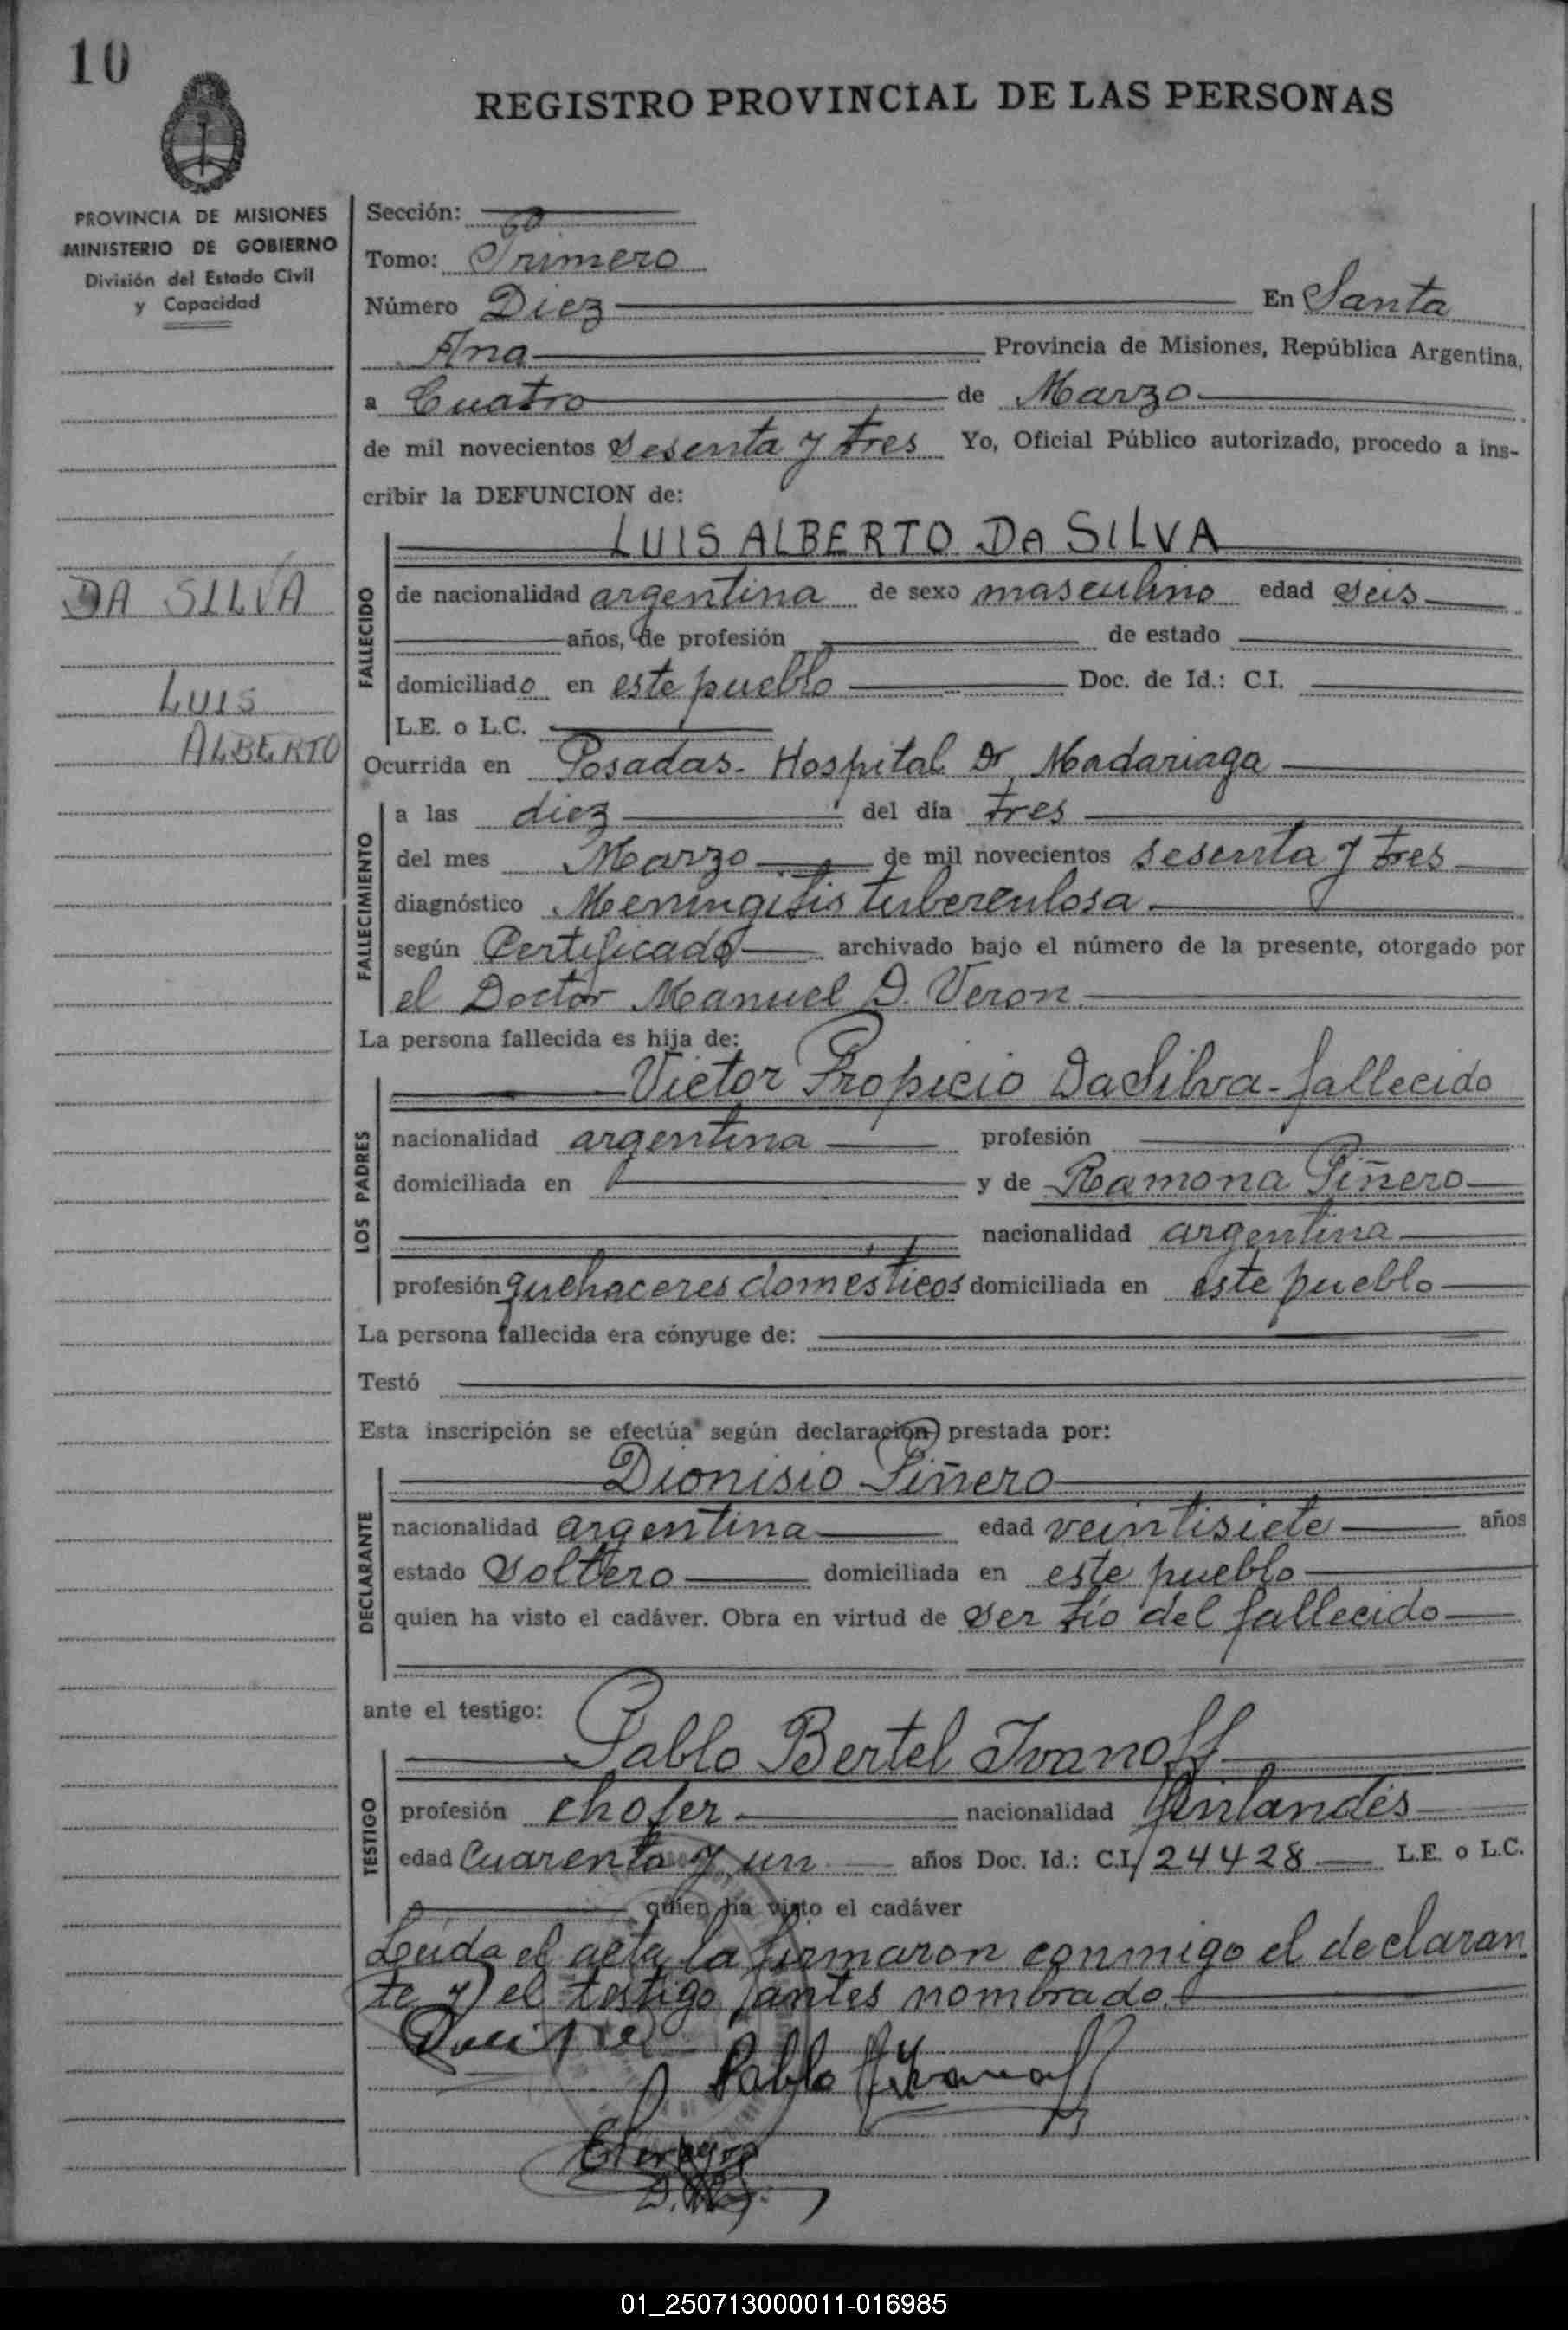 10
REGISTRO PROVINCIAL DE LAS PERSONAS
PROVINCIA DE MISIONES
MINISTERIO DE GOBIERNO
División del Estado Civil
y Capacidad
DA SILVA
LUIS
ALBERTO
Sección:
Tomo: Primero
Número Diez En Santa
Ana Provincia de Misiones, República Argentina,
a Cuatro de Marzo
de mil novecientos sesenta y tres Yo, Oficial Público autorizado, procedo a ins-
cribir la DEFUNCION de:
FALLECIDO
LUIS ALBERTO DA SILVA
de nacionalidad argentina de sexo masculino edad seis
años, de profesión de estado
domiciliado en este pueblo Doc. de Id.: C.I.
L.E. o L.C.
Ocurrida en Posadas - Hospital Dr Madariaga
FALLECIMIENTO
a las diez del día tres
del mes Marzo de mil novecientos sesenta y tres
diagnóstico Meningitis tuberculosa
según Certificado archivado bajo el número de la presente, otorgado por
el Doctor Manuel D. Veron
La persona fallecida es hija de:
LOS PADRES
Victor Propicio Da Silva - fallecido
nacionalidad argentina profesión
domiciliada en y de Ramona Piñero
nacionalidad argentina
profesión quehaceres domésticos domiciliada en este pueblo
La persona fallecida era cónyuge de:
Testó
Esta inscripción se efectúa según declaración prestada por:
DECLARANTE
Dionisio Piñero
nacionalidad argentina edad veintisiete años
estado soltero domiciliada en este pueblo
quien ha visto el cadáver. Obra en virtud de ser tío del fallecido
ante el testigo:
TESTIGO
Pablo Bertel Ivanoff
profesión chofer nacionalidad finlandés
edad Cuarenta y un años Doc. Id.: C.I. 24428 L.E. o L.C.
quien ha visto el cadáver
Leida el acta, la firmaron conmigo el declaran
te y el testigo antes nombrado.
Pablo Ivanoff
01_250713000011-016985